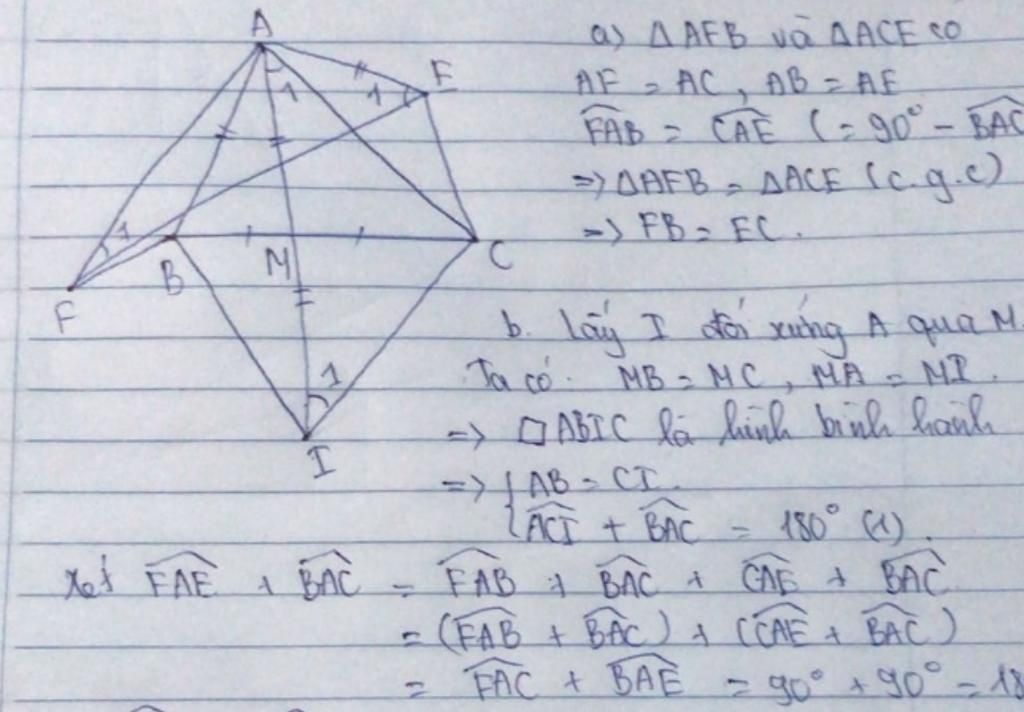 A
E
1
1
1
F
B
M
C
1
I
a) ΔAFB và ΔACE có
AF = AC, AB = AE
FAB = CAE (= 90° - BAC
=> ΔAFB = ΔACE (c.g.c)
=> FB = EC.
b. lấy I đối xứng A qua M.
Ta có. MB = MC, MA = MI.
=> □ABIC là hình bình hành
=> { AB = CI.
ACI + BAC = 180° (1).
Xét FAE + BAC = FAB + BAC + CAE + BAC
= (FAB + BAC) + (CAE + BAC)
= FAC + BAE = 90° + 90° = 18